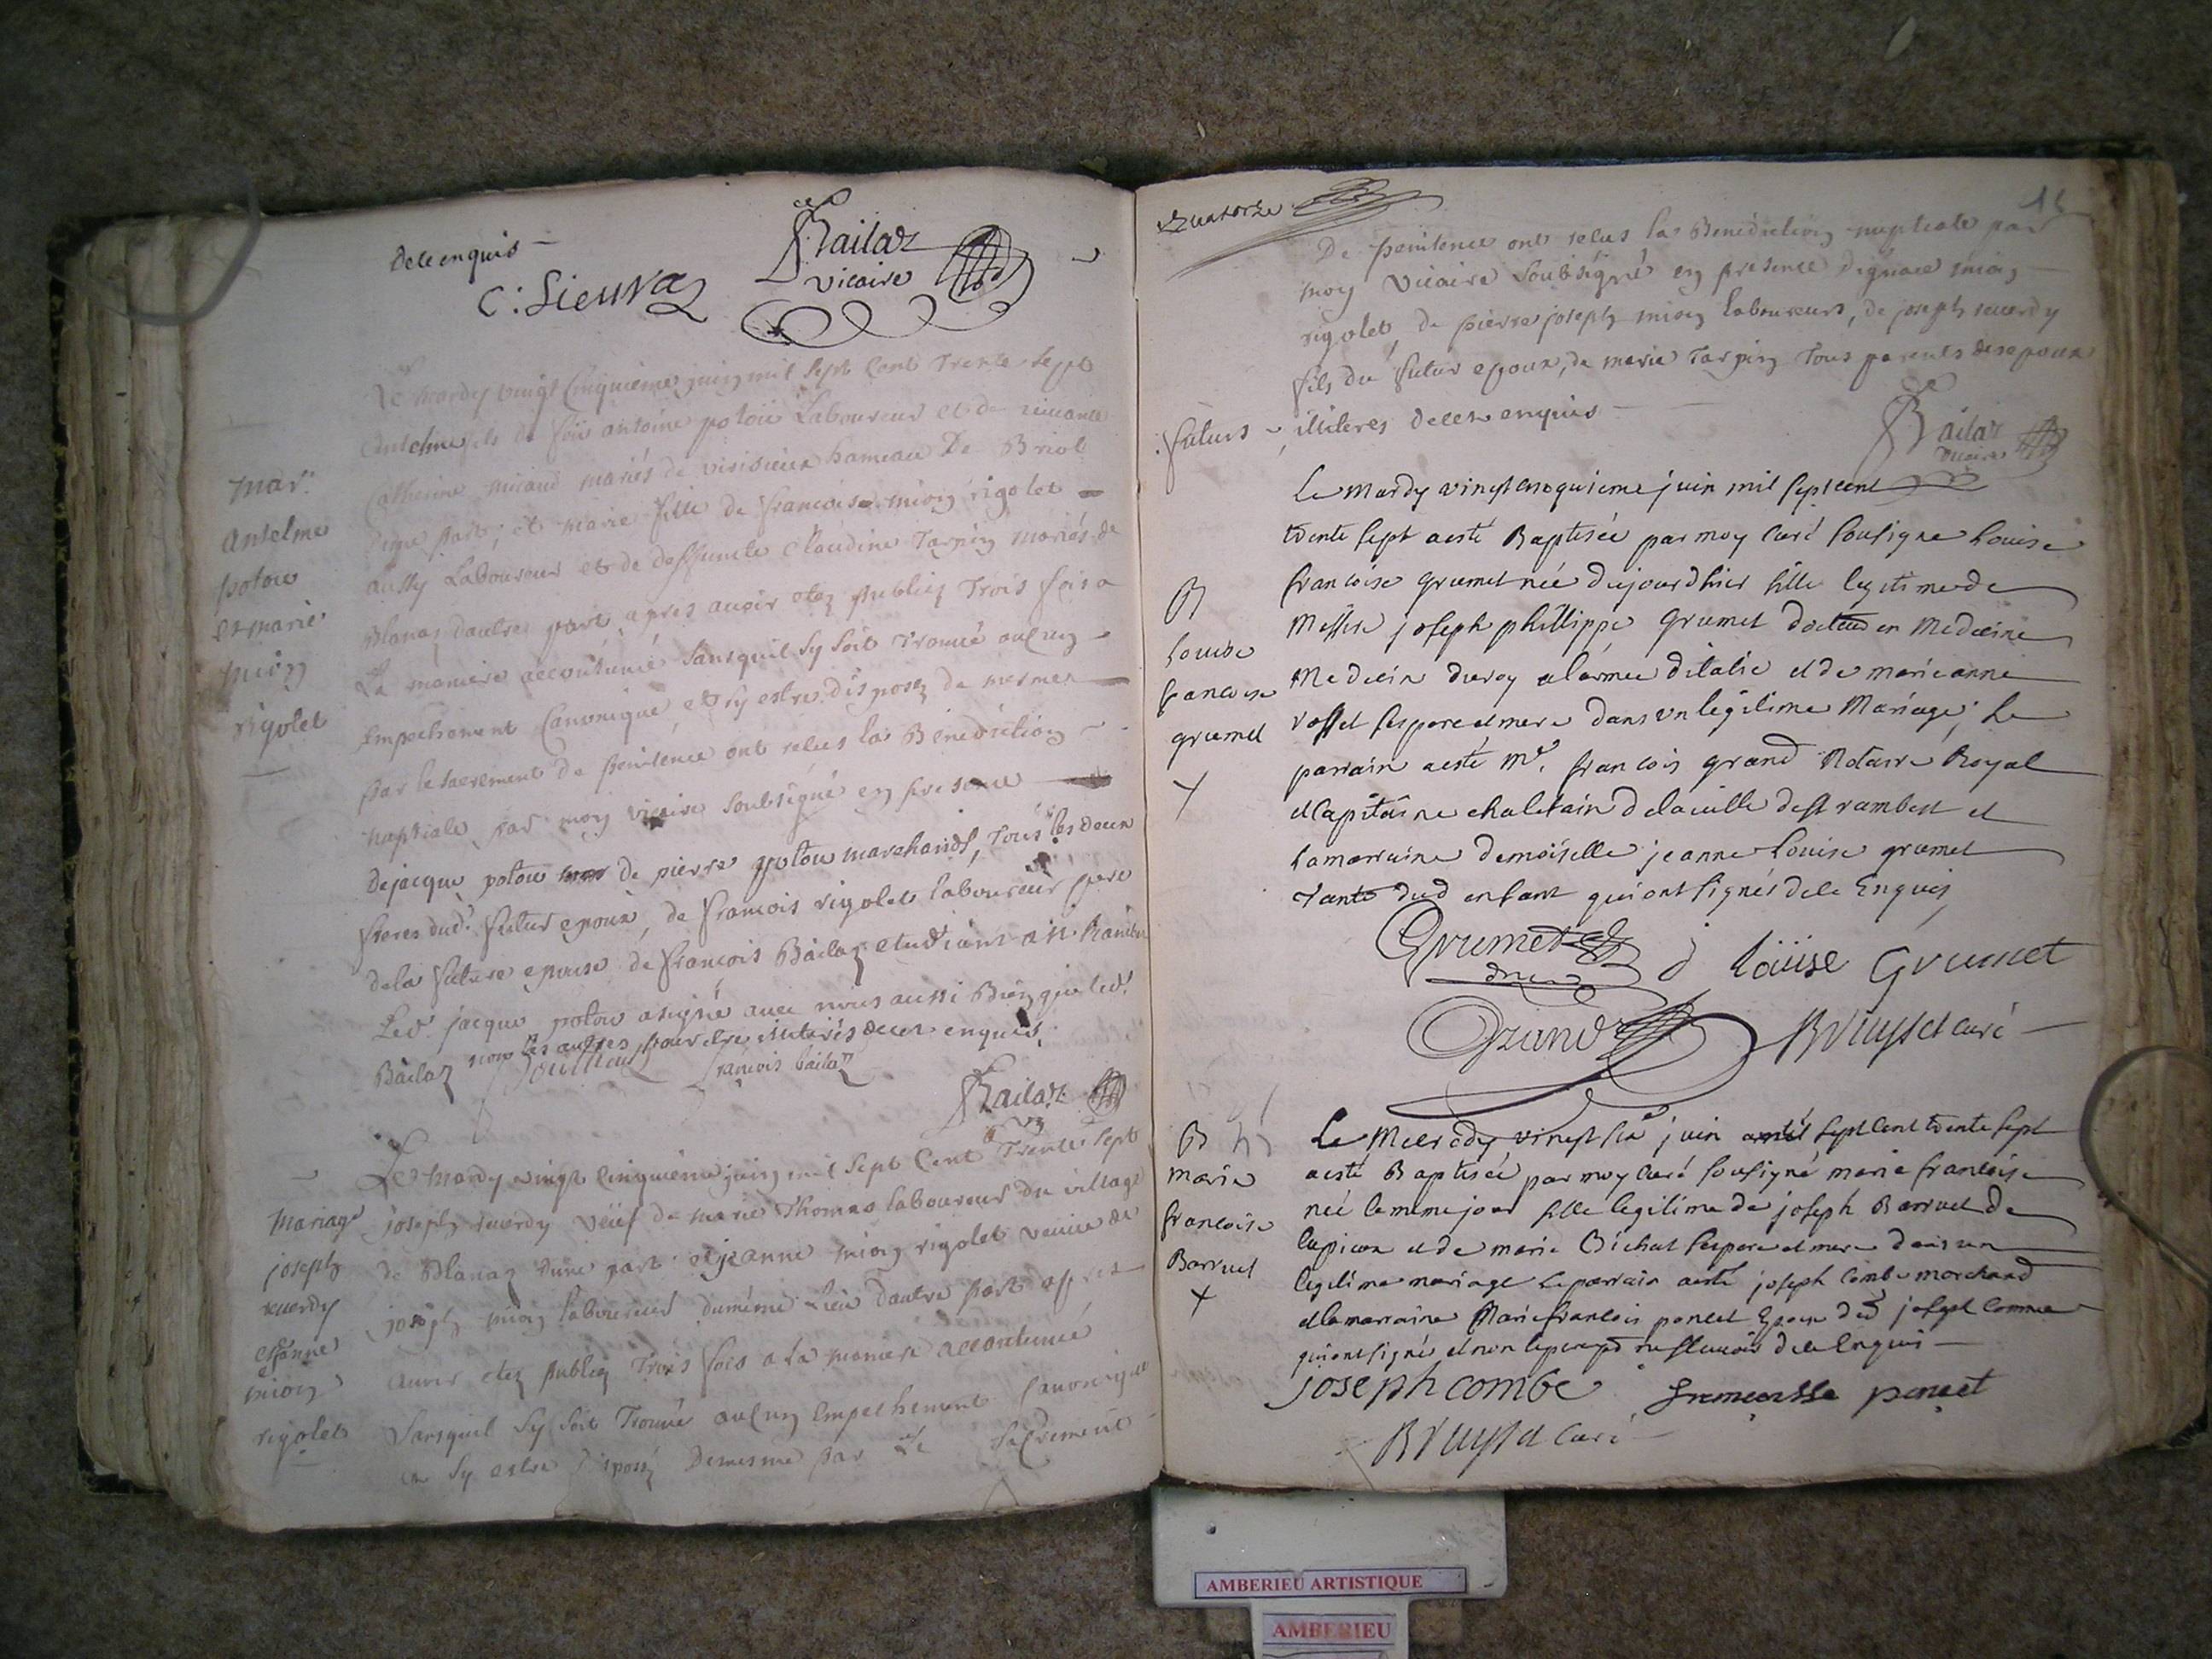 de ce enquis
C: Sieuraz
Bailaz
vicaire
Le mardy vingt cinquieme juing mil sept cent trente sept
anselme fils de feü antoine potoü Laboureur et de vivante
Catherine miraud mariés de visidieux hameau De
d'une part; et marie fille de francoise miong rigolet
aussy Laboureur et de deffuncte Claudine Tarping mariés de
Blanaz dautre part apres avoir etez publiez Trois fois a
La maniere accoutumé sansquil sy soit trouvé aulcung
Empechement Canonique et sy estre disposez de mesmes
par le sacrement de penitence ont reçus la Benediction
nuptiale par moy vicaire soubsigné en presence
de jacque potou de pierre potou marchands, tous les deux
freres dud. futur epoux, de francois rigolet laboureur pere
de la future epouse de francois Bailaz etudiant a
Led. jacque potou a signé avec nous aussi Bieng que led.
Bailaz non les autres pour etre illiterés de ce enquis.
francois bailaz
Bailaz
mar.
anselme
potou
et marie
miong
rigolet
Le mardy vingt cinquieme juing mil sept Cent Trente sept
joseph reverdy veuf de marie Thomas laboureur du village
de Blanaz d'une part et jeanne miong rigolet veuve de
joseph miong laboureur du méme Lieu dautre part apres
avoir etez publiez Trois fois a la maniere accoutumé
sansquil sy soit Trouvé aulcung Empechement Canonique
sy estre disposez de mesme par Le sacrement
mariage
joseph
reverdy
et jeanne
miong
rigolet
quatorze
14
De penitence ont reçus la Benediction nuptiale par
moy Vicaire soubsigné en presence d'ignace miong
rigolet, de pierre joseph miong laboureurs, de joseph reverdy
fils du futur epoux, de marie Tarping tous parents des epoux
futurs illiteres de ce enquis
Bailaz
vicaire
Le mardy vingt cinquieme juin mil sept cent
trente sept a esté Baptisée par moy curé sousigne Louise
francoise grumet née du jourdhier fille legitime de
Messire joseph phillippe Grumet docteur en Medecine
Medecin du roy a l'armee ditalie et de marie anne
rosset ses pere et mere dans un legitime Mariage; Le
parrain a esté Mr. francois grand Notaire Royal
et Capitaine chatelain de la ville de st rambert et
la marraine demoiselle jeanne Louise grumet
tante dud enfant qui ont signés de ce Enquis
B
Louise
francoise
grumet
Grumet
Loüise Grumet
Grand
Bruyset curé
Le Mercredy vingt six juin mil sept cent trente sept
a esté Baptisée par moy curé sousigné marie francoise
née le meme jour fille legitime de joseph Barruel de
lupieux et de marie Bichat ses pere et mere dans un
legitime mariage Le parrain a esté joseph Combe marchand
et la marraine Marie francois poncet Epouse dud joseph Combe
qui ont signé et non le pere pr ne scavoir de ce enquis
B
marie
francoise
Barruel
joseph combe
poncet
Bruyset Curé
AMBERIEU ARTISTIQUE
AMBERIEU